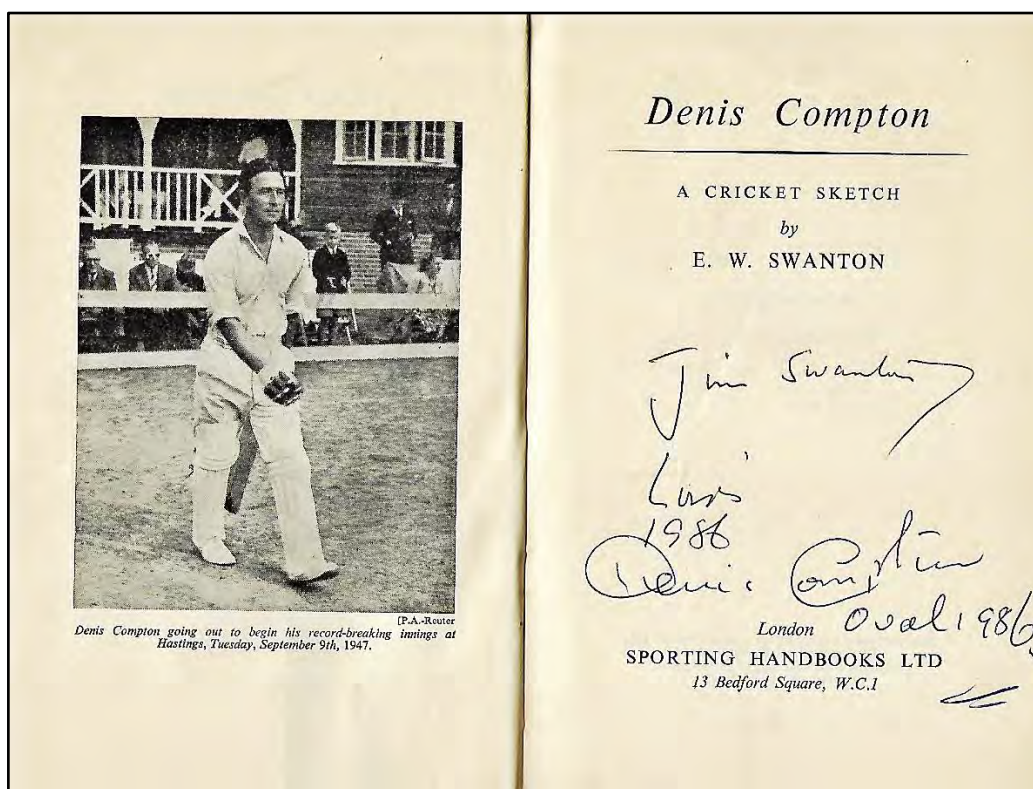 [P.A.-Reuter
Denis Compton going out to begin his record-breaking innings at
Hastings, Tuesday, September 9th, 1947.
Denis Compton
A CRICKET SKETCH
by
E. W. SWANTON
Jim Swanton
Lord's
1986
Denis Compton
Oval 1986
London
SPORTING HANDBOOKS LTD
13 Bedford Square, W.C.1